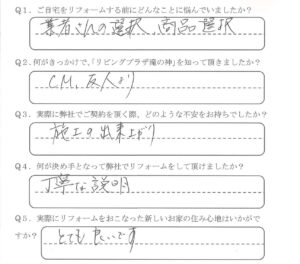 Q1．ご自宅をリフォームする前にどんなことに悩んでいましたか？
業者さんの選択、商品選択
Q2．何がきっかけで、「リビングプラザ滝の神」を知って頂きましたか？
CM、友人より
Q3．実際に弊社でご契約を頂く際、どのような不安をお持ちでしたか？
施工の出来上がり
Q4．何が決め手となって弊社でリフォームをして頂けましたか？
丁寧な説明
Q5．実際にリフォームをおこなった新しいお家の住み心地はいかがで
すか？
とても良いです